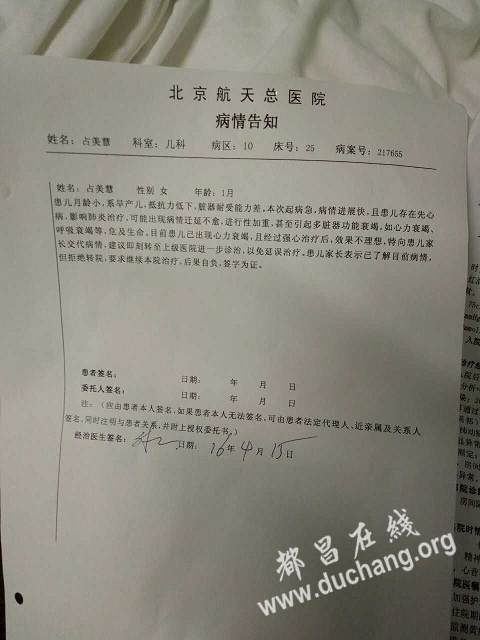 北京航天总医院
病情告知
姓名：占美慧 科室：儿科 病区：10 床号：25 病案号：217655
姓名：占美慧 性别 女 年龄：1月
患儿月龄小，系早产儿，抵抗力低下，脏器耐受能力差，本次起病急，病情进展快，且患儿存在先心
病，影响肺炎治疗，可能出现病情迁延不愈，进行性加重，甚至引起多脏器功能衰竭，如心力衰竭、
呼吸衰竭等，危及生命。目前患儿已出现心力衰竭，且经过强心治疗后，效果不理想，特向患儿家
长交代病情，建议即刻转至上级医院进一步诊治，以免延误治疗。患儿家长表示已了解目前病情，
但拒绝转院，要求继续本院治疗，后果自负，签字为证。
患者签名： 日期： 年 月 日
委托人签名： 日期： 年 月 日
注：（应由患者本人签名，如果患者本人无法签名，可由患者法定代理人、近亲属及关系人
签名，同时注明与患者关系，并附上授权委托书。）
经治医生签名： 日期：16年4月15日
都昌在线
www.duchang.org